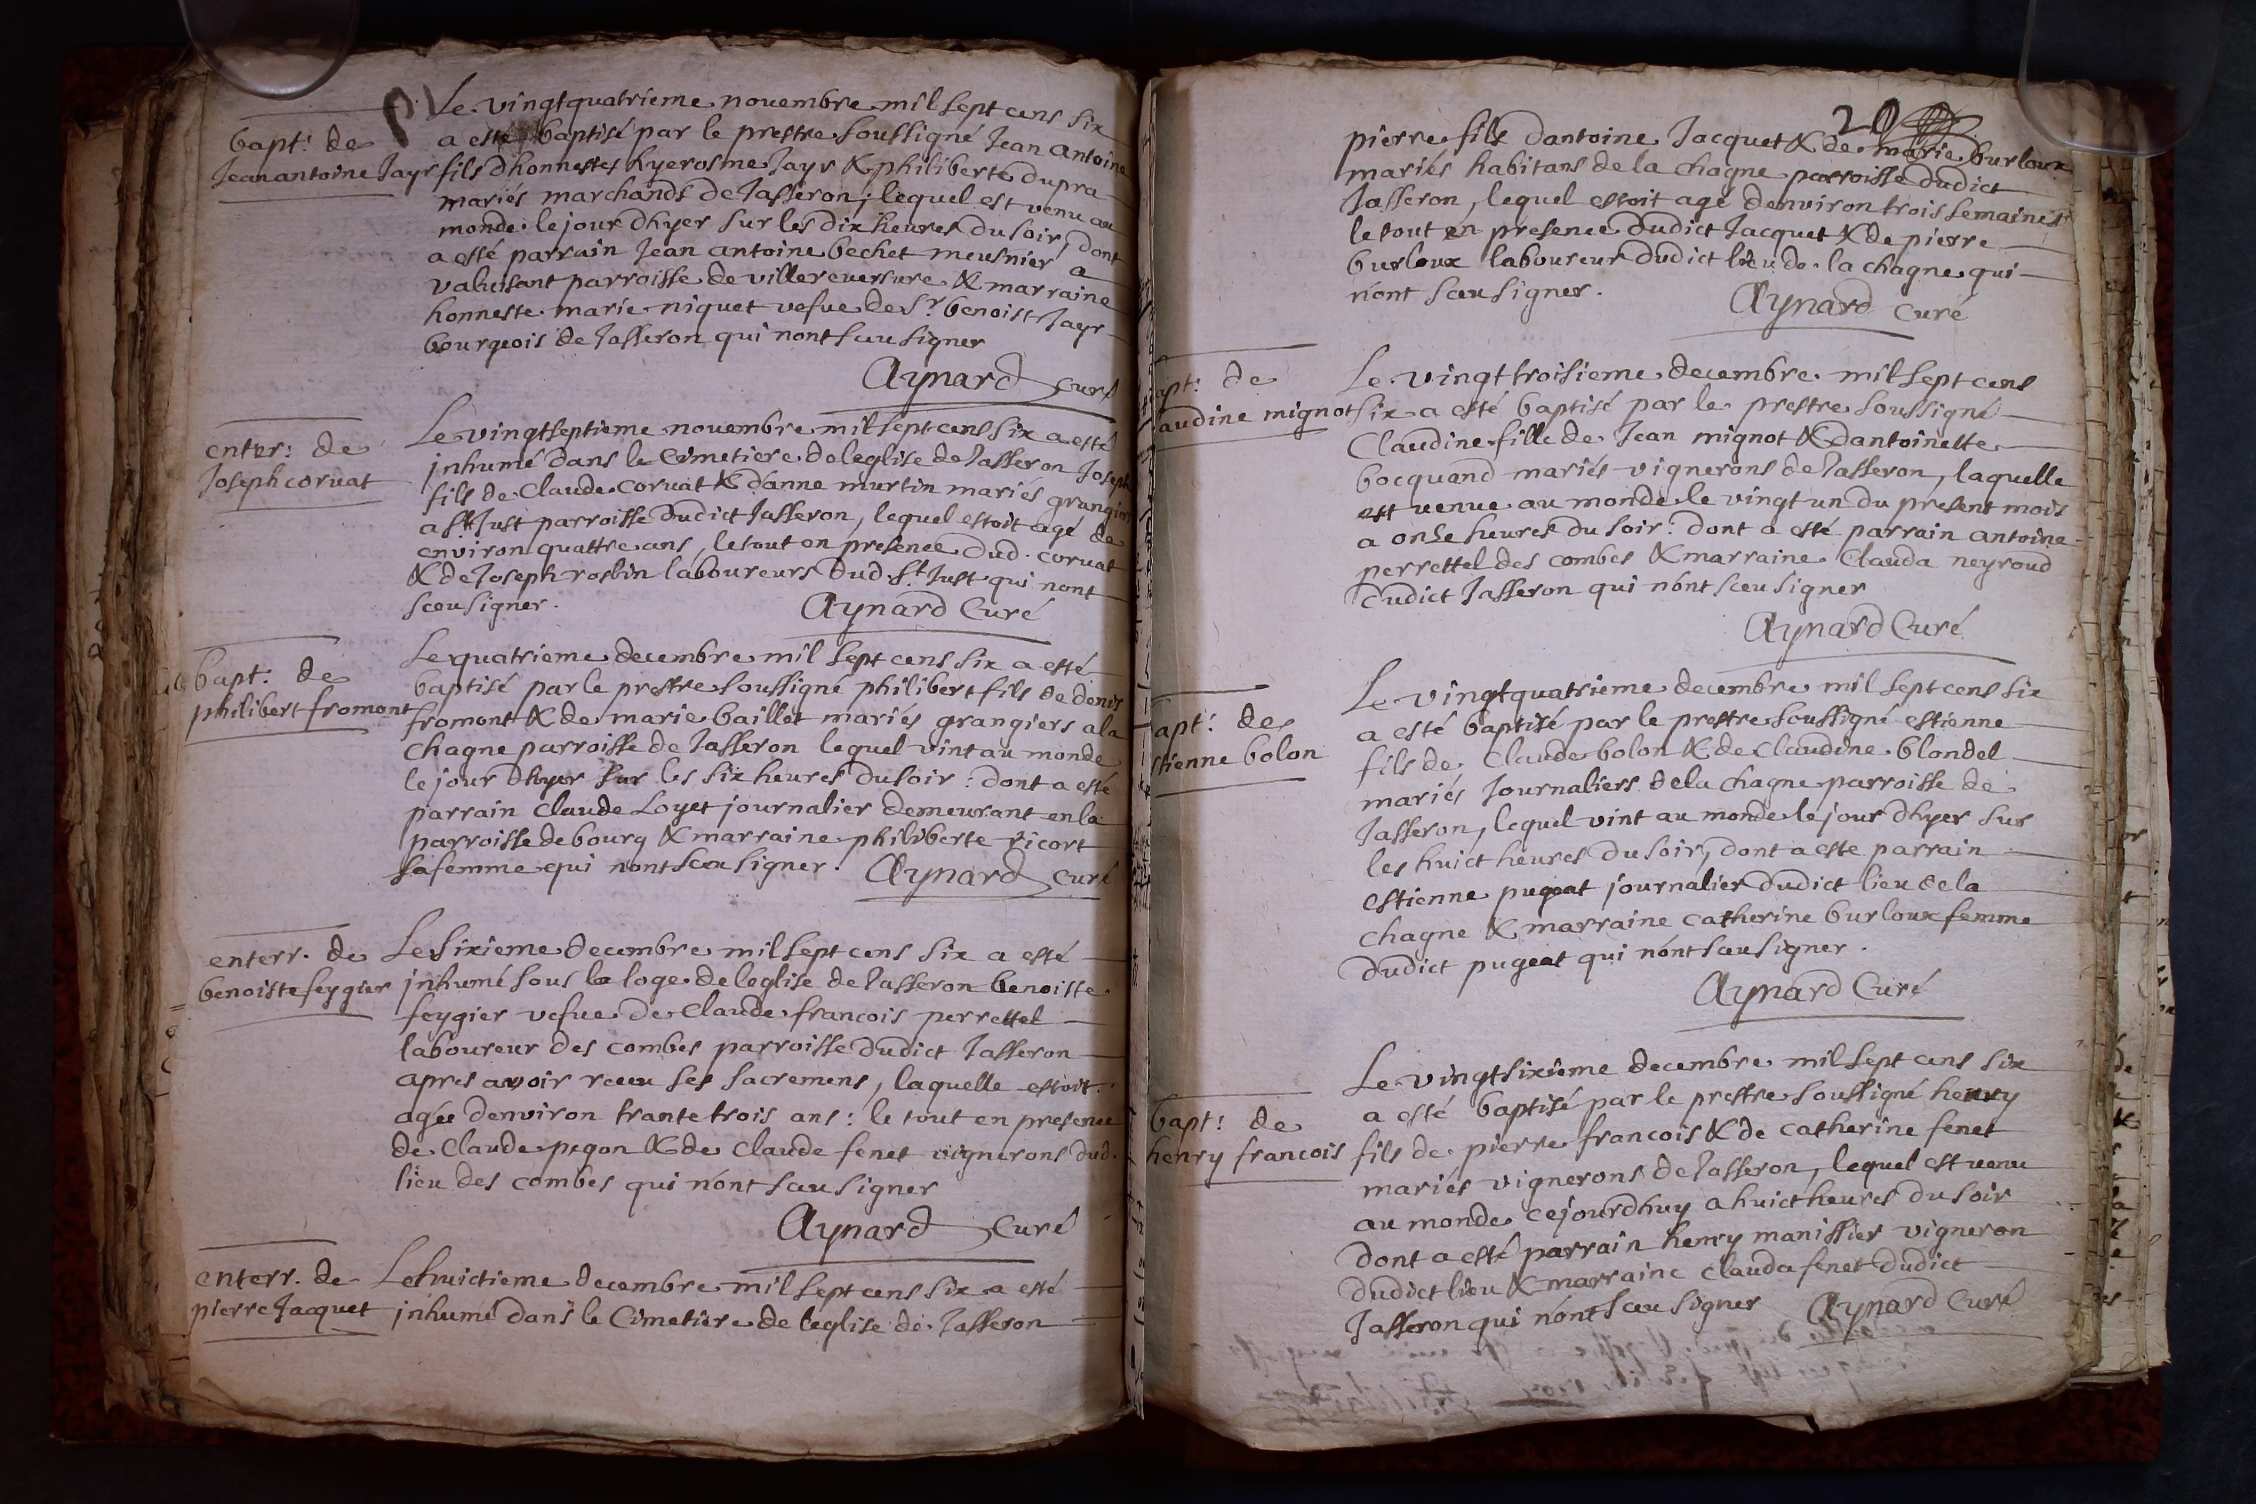 Le vingtquatrieme novembre mil sept cens six
bapt: de
a esté baptisé par le prestre soussigné Jean antoine
Jean antoine Jayr
fils dhonnestes hyerosme Jayr & philiberte dupra
mariés marchands de Jasseron, lequel est venu au
monde le jour dhyer sur les dix heures du soir, dont
a esté parrain Jean antoine bechet meusnier a
valuisant parroisse de villereversure & marraine
honneste marie niquet vefue de Sr. benoist Jayr
bourgeois de Jasseron qui nont sceu signer
Aynard curé
Le vingtseptieme novembre mil sept cens six a esté
enter: de
Joseph coruat
inhumé dans le Cimetiere de leglise de Jasseron Joseph
fils de Claude coruat & danne murtin mariés grangiers
a St Just parroisse dudict Jasseron, lequel estoit agé de
environ quattre ans, le tout en presence dud. coruat
& de Joseph rosbin laboureurs dud. St Just qui nont
sceu signer.
Aynard Curé
Le quatrieme decembre mil sept cens six a esté
bapt: de
philibert fromont
baptisé par le prestre soussigné philibert fils de denis
fromont & de marie baillet mariés grangiers a la
chagne parroisse de Jasseron lequel vint au monde
le jour dhyer sur les six heures du soir: dont a esté
parrain claude Loyet journalier demeurant en la
parroisse de bourg & marraine philiberte ricort
sa femme qui nont sceu signer.
Aynard curé
enterr. de
benoiste feygier
Le sixieme decembre mil sept cens six a esté
inhumé sous la loge de leglise de Jasseron benoiste
feygier vefue de Claude francois perrettel
laboureur des combes parroisse dudict Jasseron
apres avoir receu ses sacremens, laquelle estoit
agée denviron trante trois ans: le tout en presence
de Claude pegon & de Claude fenet vignerons dud.
lieu des combes qui nont sceu signer
Aynard Curé
enterr. de
pierre Jacquet
Le huictieme decembre mil sept cens six a esté
inhumé dans le Cimetiere de leglise de Jasseron
20
pierre fils dantoine Jacquet & de marie burloux
mariés habitans de la chagne parroisse dudict
Jasseron, lequel estoit agé denviron trois semaines
le tout en presence dudict Jacquet & de pierre
burloux laboureur dudict lieu de la chagne qui
nont sceu signer.
Aynard Curé
apt: de
audine mignot
Le vingt troisieme decembre mil sept cens
six a esté baptisé par le prestre soussigné
Claudine fille de Jean mignot & dantoinette
bocquand mariés vignerons de Jasseron, laquelle
est venue au monde le vingt un du present mois
a onze heures du soir: dont a esté parrain antoine
perrettel des combes & marraine Clauda neyroud
dudict Jasseron qui nont sceu signer
Aynard Curé
apt: de
stienne bolon
Le vingtquatrieme decembre mil sept cens six
a esté baptisé par le prestre soussigné estienne
fils de Claude bolon & de Claudine blondel
mariés Journaliers de la chagne parroisse de
Jasseron, lequel vint au monde le jour dhyer sur
les huict heures du soir, dont a esté parrain
estienne pugeat journalier dudict lieu de la
chagne & marraine catherine burloux femme
dudict pugeat qui nont sceu signer.
Aynard Curé
bapt: de
henry francois
Le vingtsixieme decembre mil sept cens six
a esté baptisé par le prestre soussigné henry
fils de pierre francois & de catherine fenet
mariés vignerons de Jasseron, lequel est venu
au monde cejourdhuy a huict heures du soir
dont a esté parrain henry manissier vigneron
dudict lieu & marraine clauda fenet dudict
Jasseron qui nont sceu signer
Aynard Curé